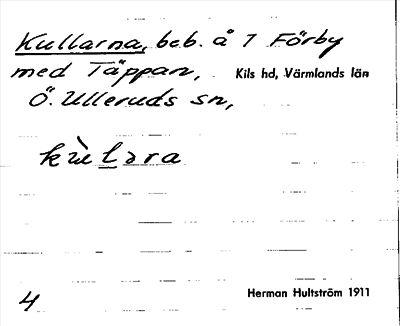 Kullarna, beb. å 7 Förby
med Täppan, Kils hd, Värmlands län
Ö. Ulleruds sn,
4 Herman Hultström 1911